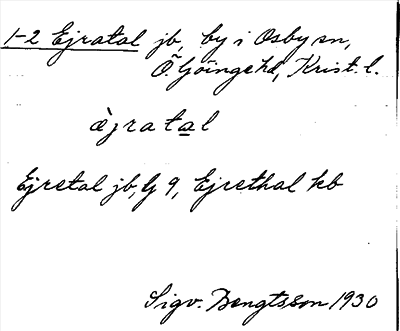 1-2 Ejratal jb, by i Osby sn,
Ö. Göinge hd, Krist. l.
æ̀jratal
Ejretal jb, G 9, Ejrethal kb
Sigv. Bengtsson 1930